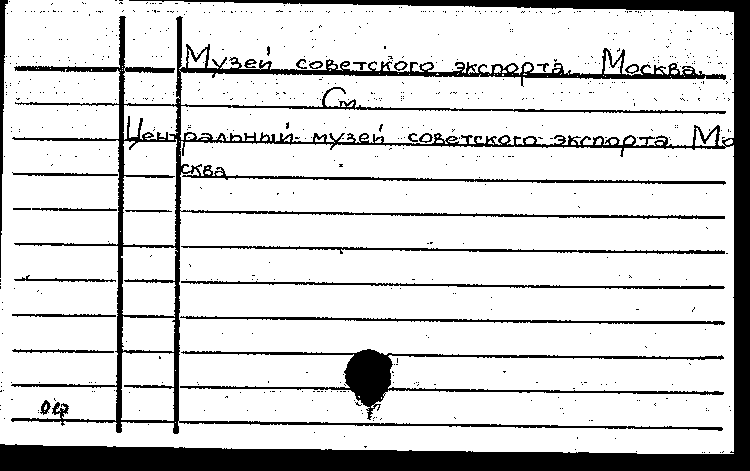 Музей советского экспорта. Москва.
См.
Центральный музей советского экспорта. Мо
сква